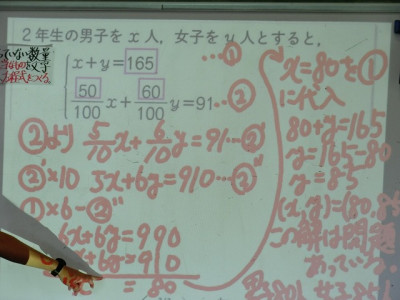 ２年生の男子を x 人，女子を y 人とすると，
x＋y＝165 …①
50/100 x＋60/100 y＝91 …②
②より 5/10 x + 6/10 y = 91 …②'
②'×10 5x+6y=910 …②''
①×6-②''
6x+6y=990
+6y=910
= 80
x=80を①
に代入
80+y=165
y=165-80
y=85
(x,y)=(80,85
この解は問題
あっている